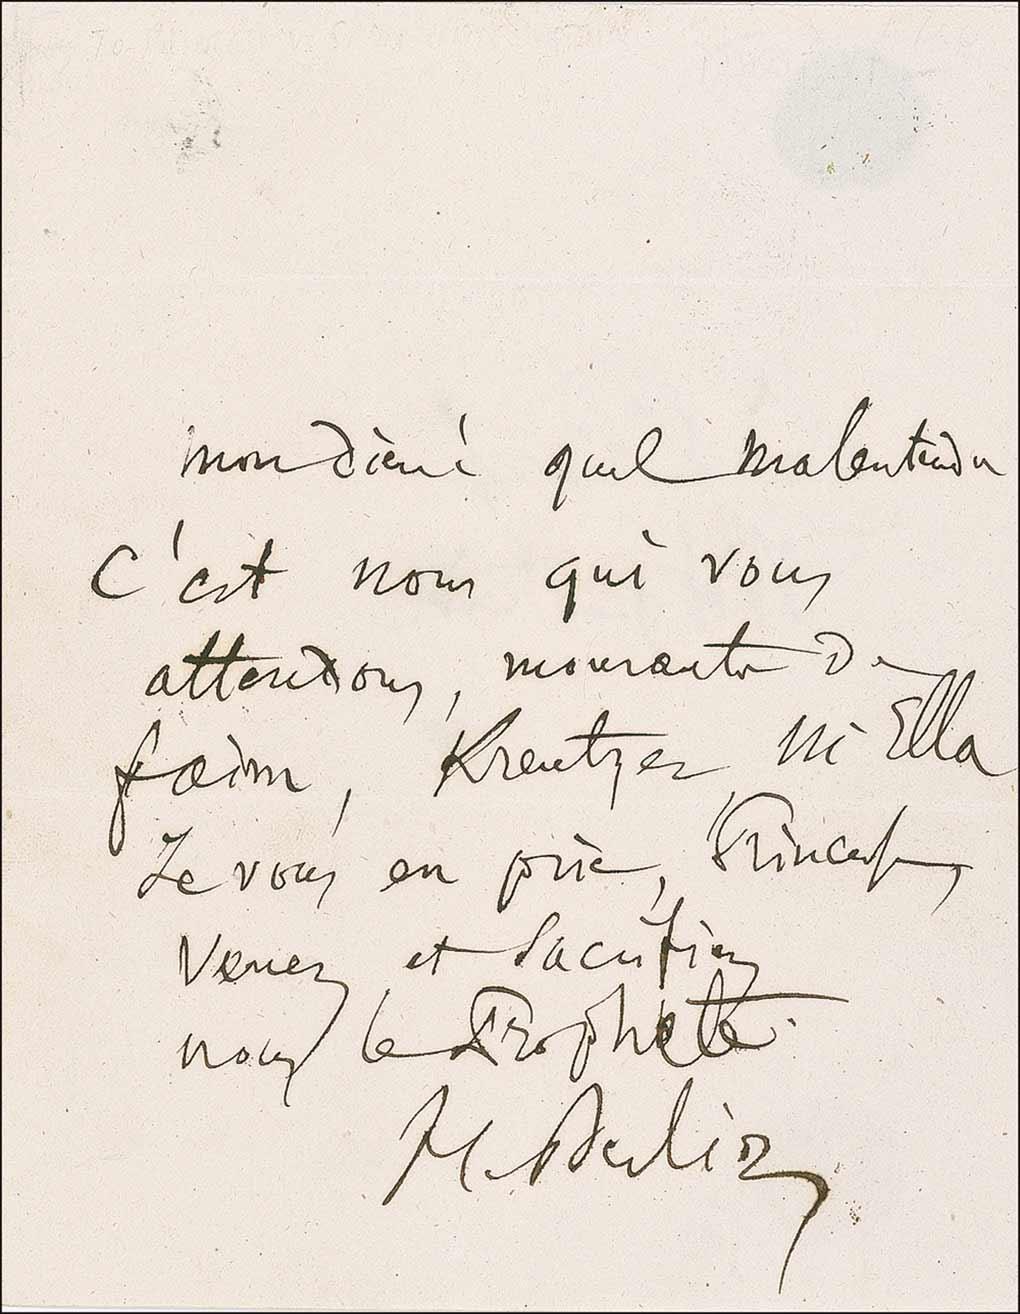 mon dieu! quel malentendu
C'est nous qui vous
attendons, mourants de
faim, Kreutzer, Ella
Je vous en prie, Princesse,
venez et sacrifiez
nous le Prophète.
H. Berlioz